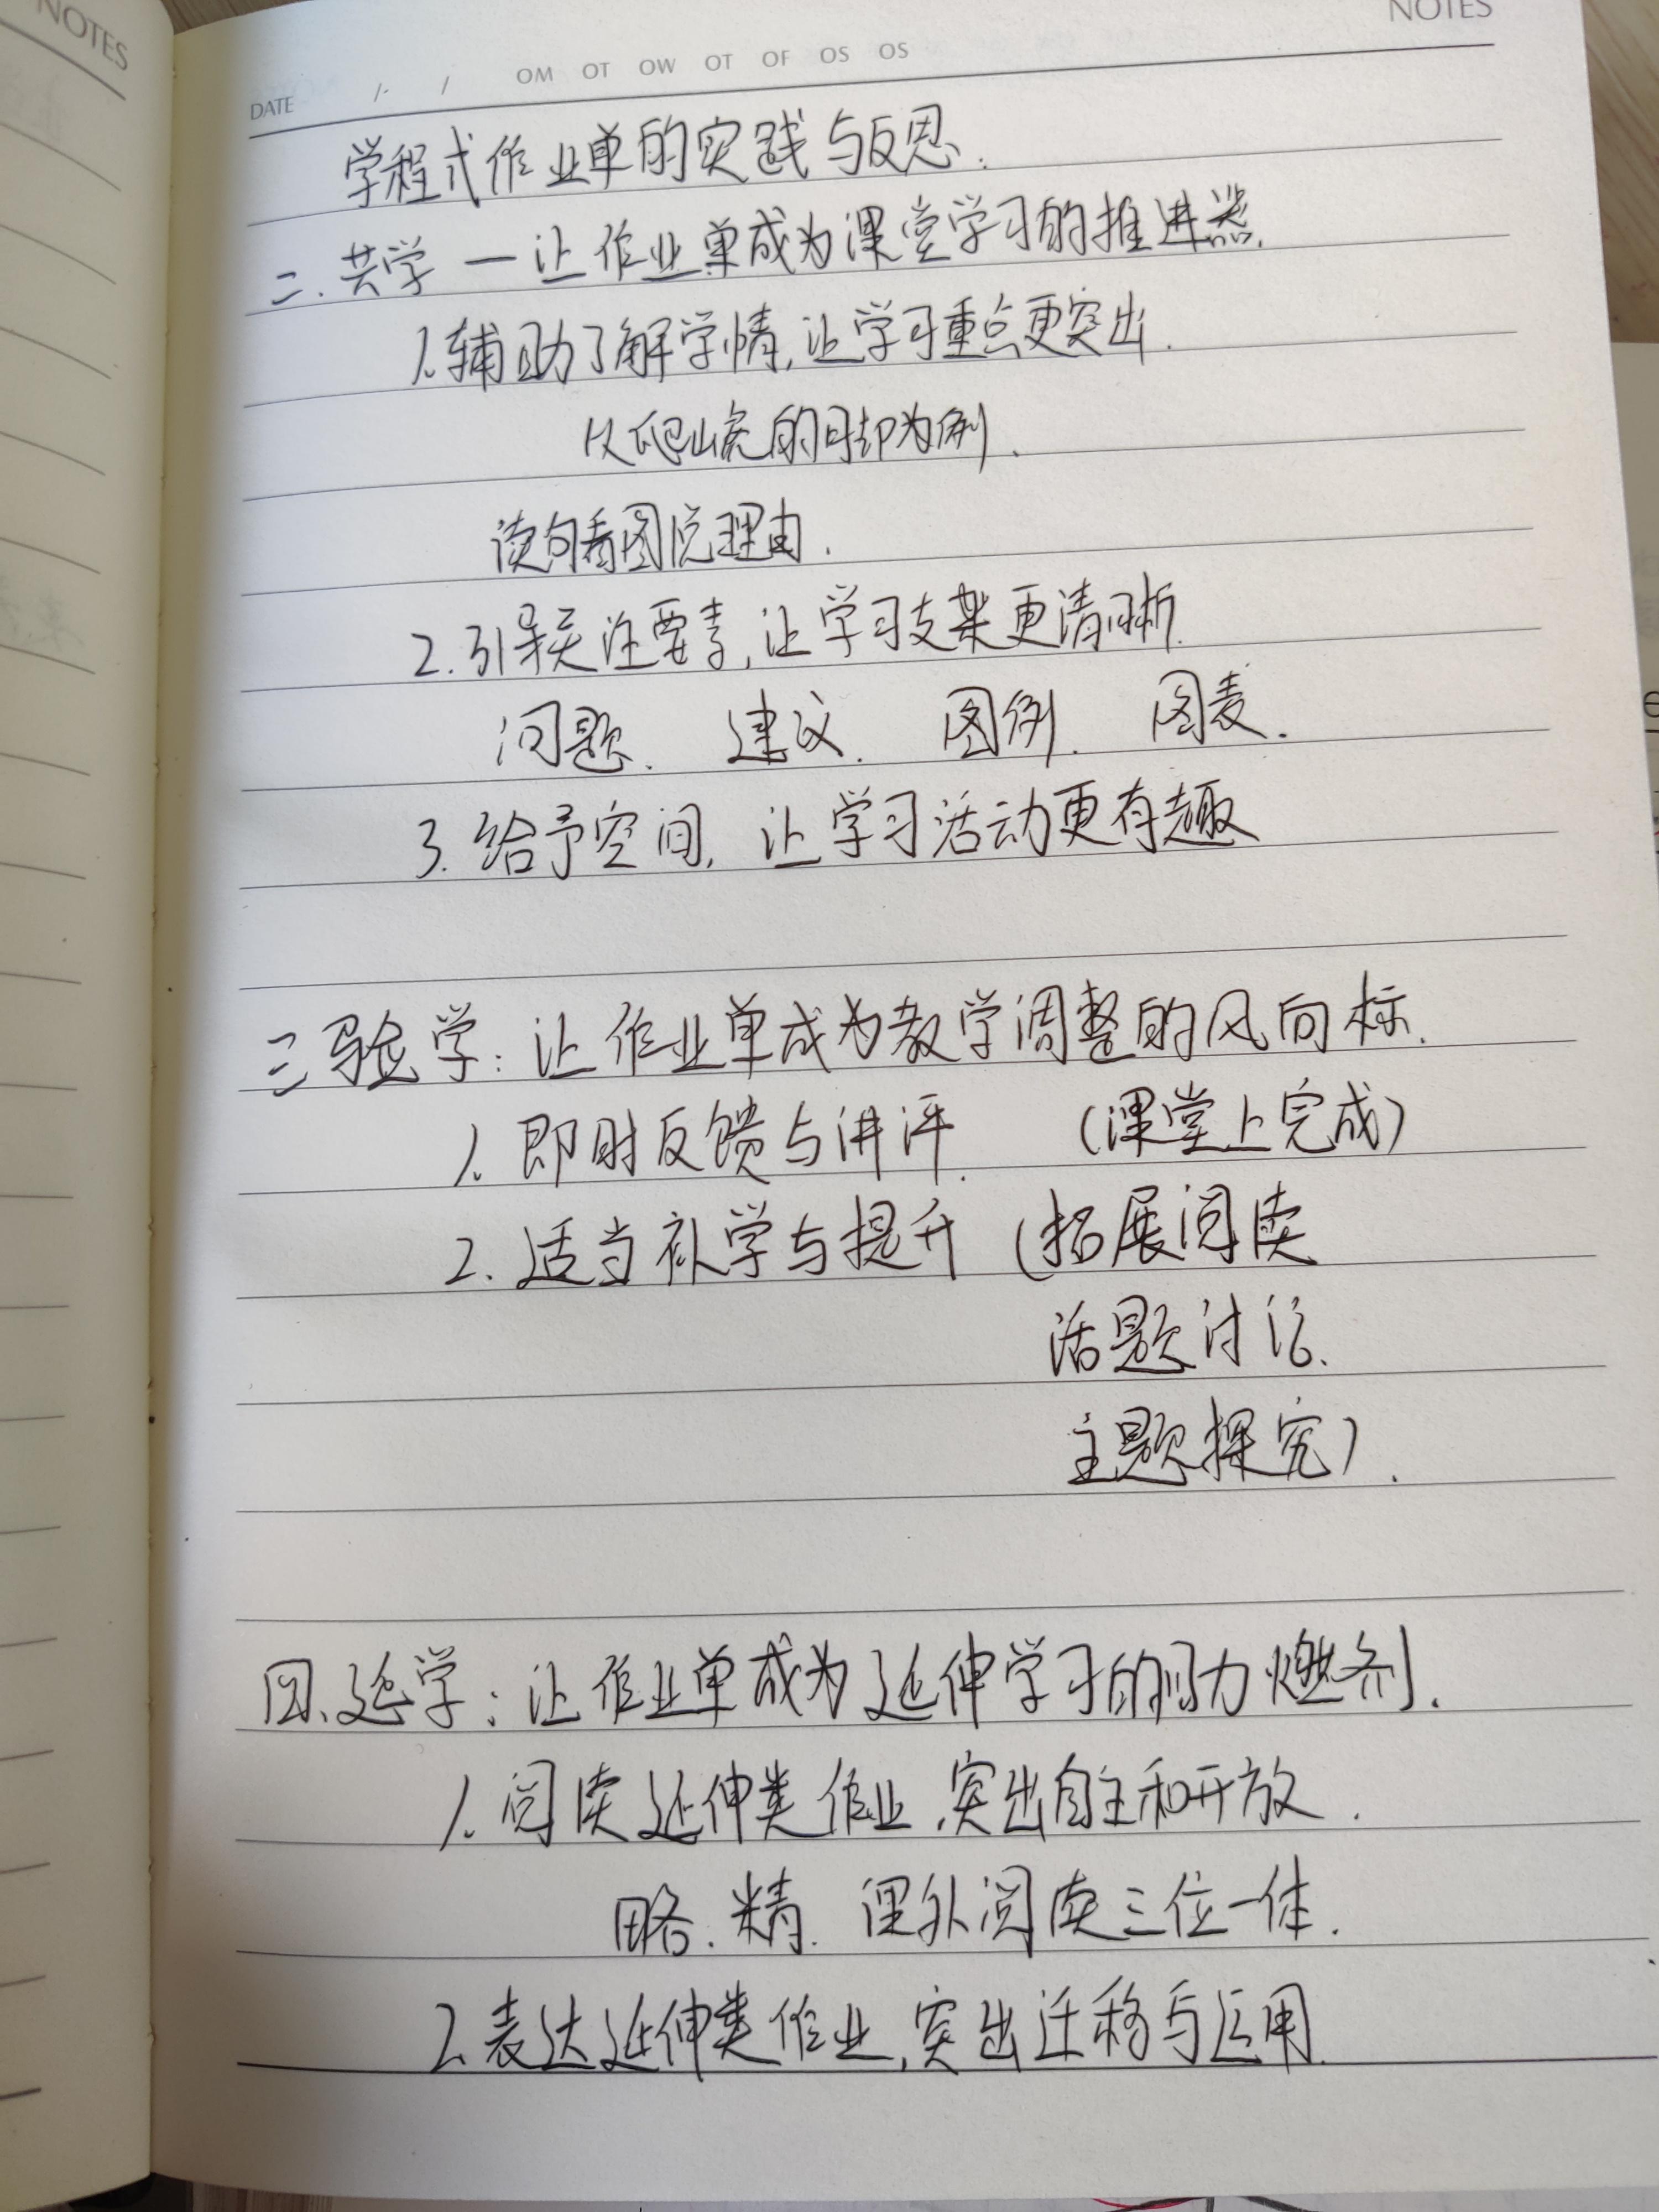 NOTES
NOTES
DATE / / OM OT OW OT OF OS OS
学程式作业单的实践与反思.
二.共学 一 让作业单成为课堂学习的推进器.
1.辅助了解学情,让学习重点更突出.
以爬山虎的脚为例.
读句看图说理由.
2.引导关注要素,让学习支架更清晰.
问题. 建议. 图例. 图表.
3.给予空间,让学习活动更有趣
三验学:让作业单成为教学调整的风向标.
1.即时反馈与讲评. (课堂上完成)
2.适当补学与提升 (拓展阅读
话题讨论.
主题探究).
四.延学:让作业单成为延伸学习的助力燃剂.
1.阅读延伸类作业,突出自主和开放.
略.精.课外阅读三位一体.
2.表达延伸类作业,突出迁移与运用.